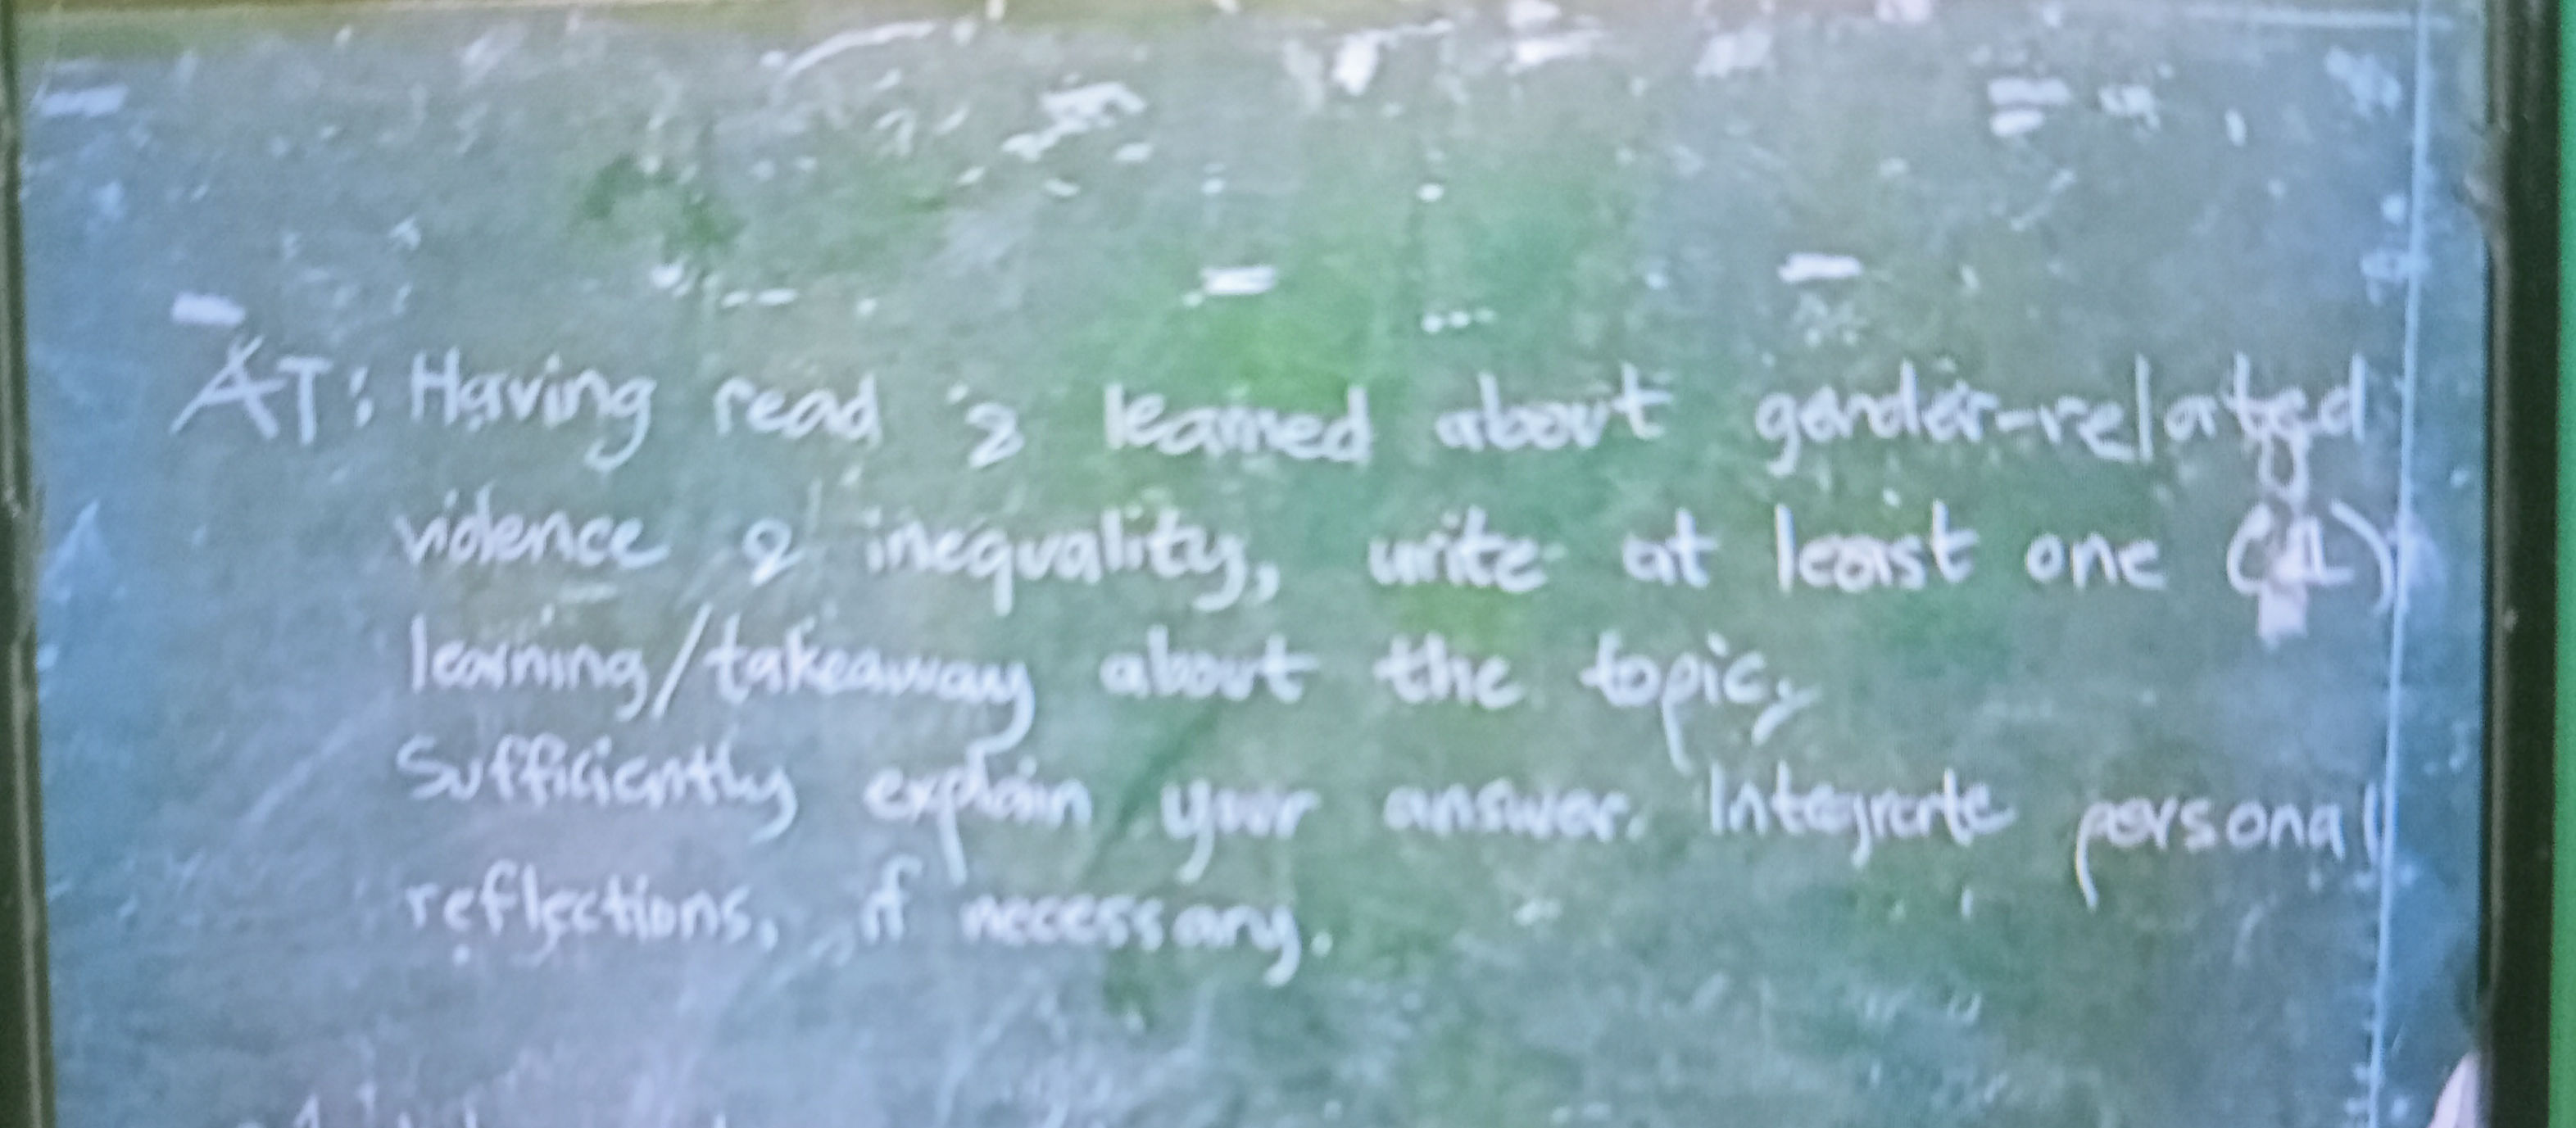 AT: Having read & learned about gender-related
violence & inequality, write at least one (1)
learning/takeaway about the topic,
Sufficiently explain your answer. Integrate personal
reflections, if necessary.